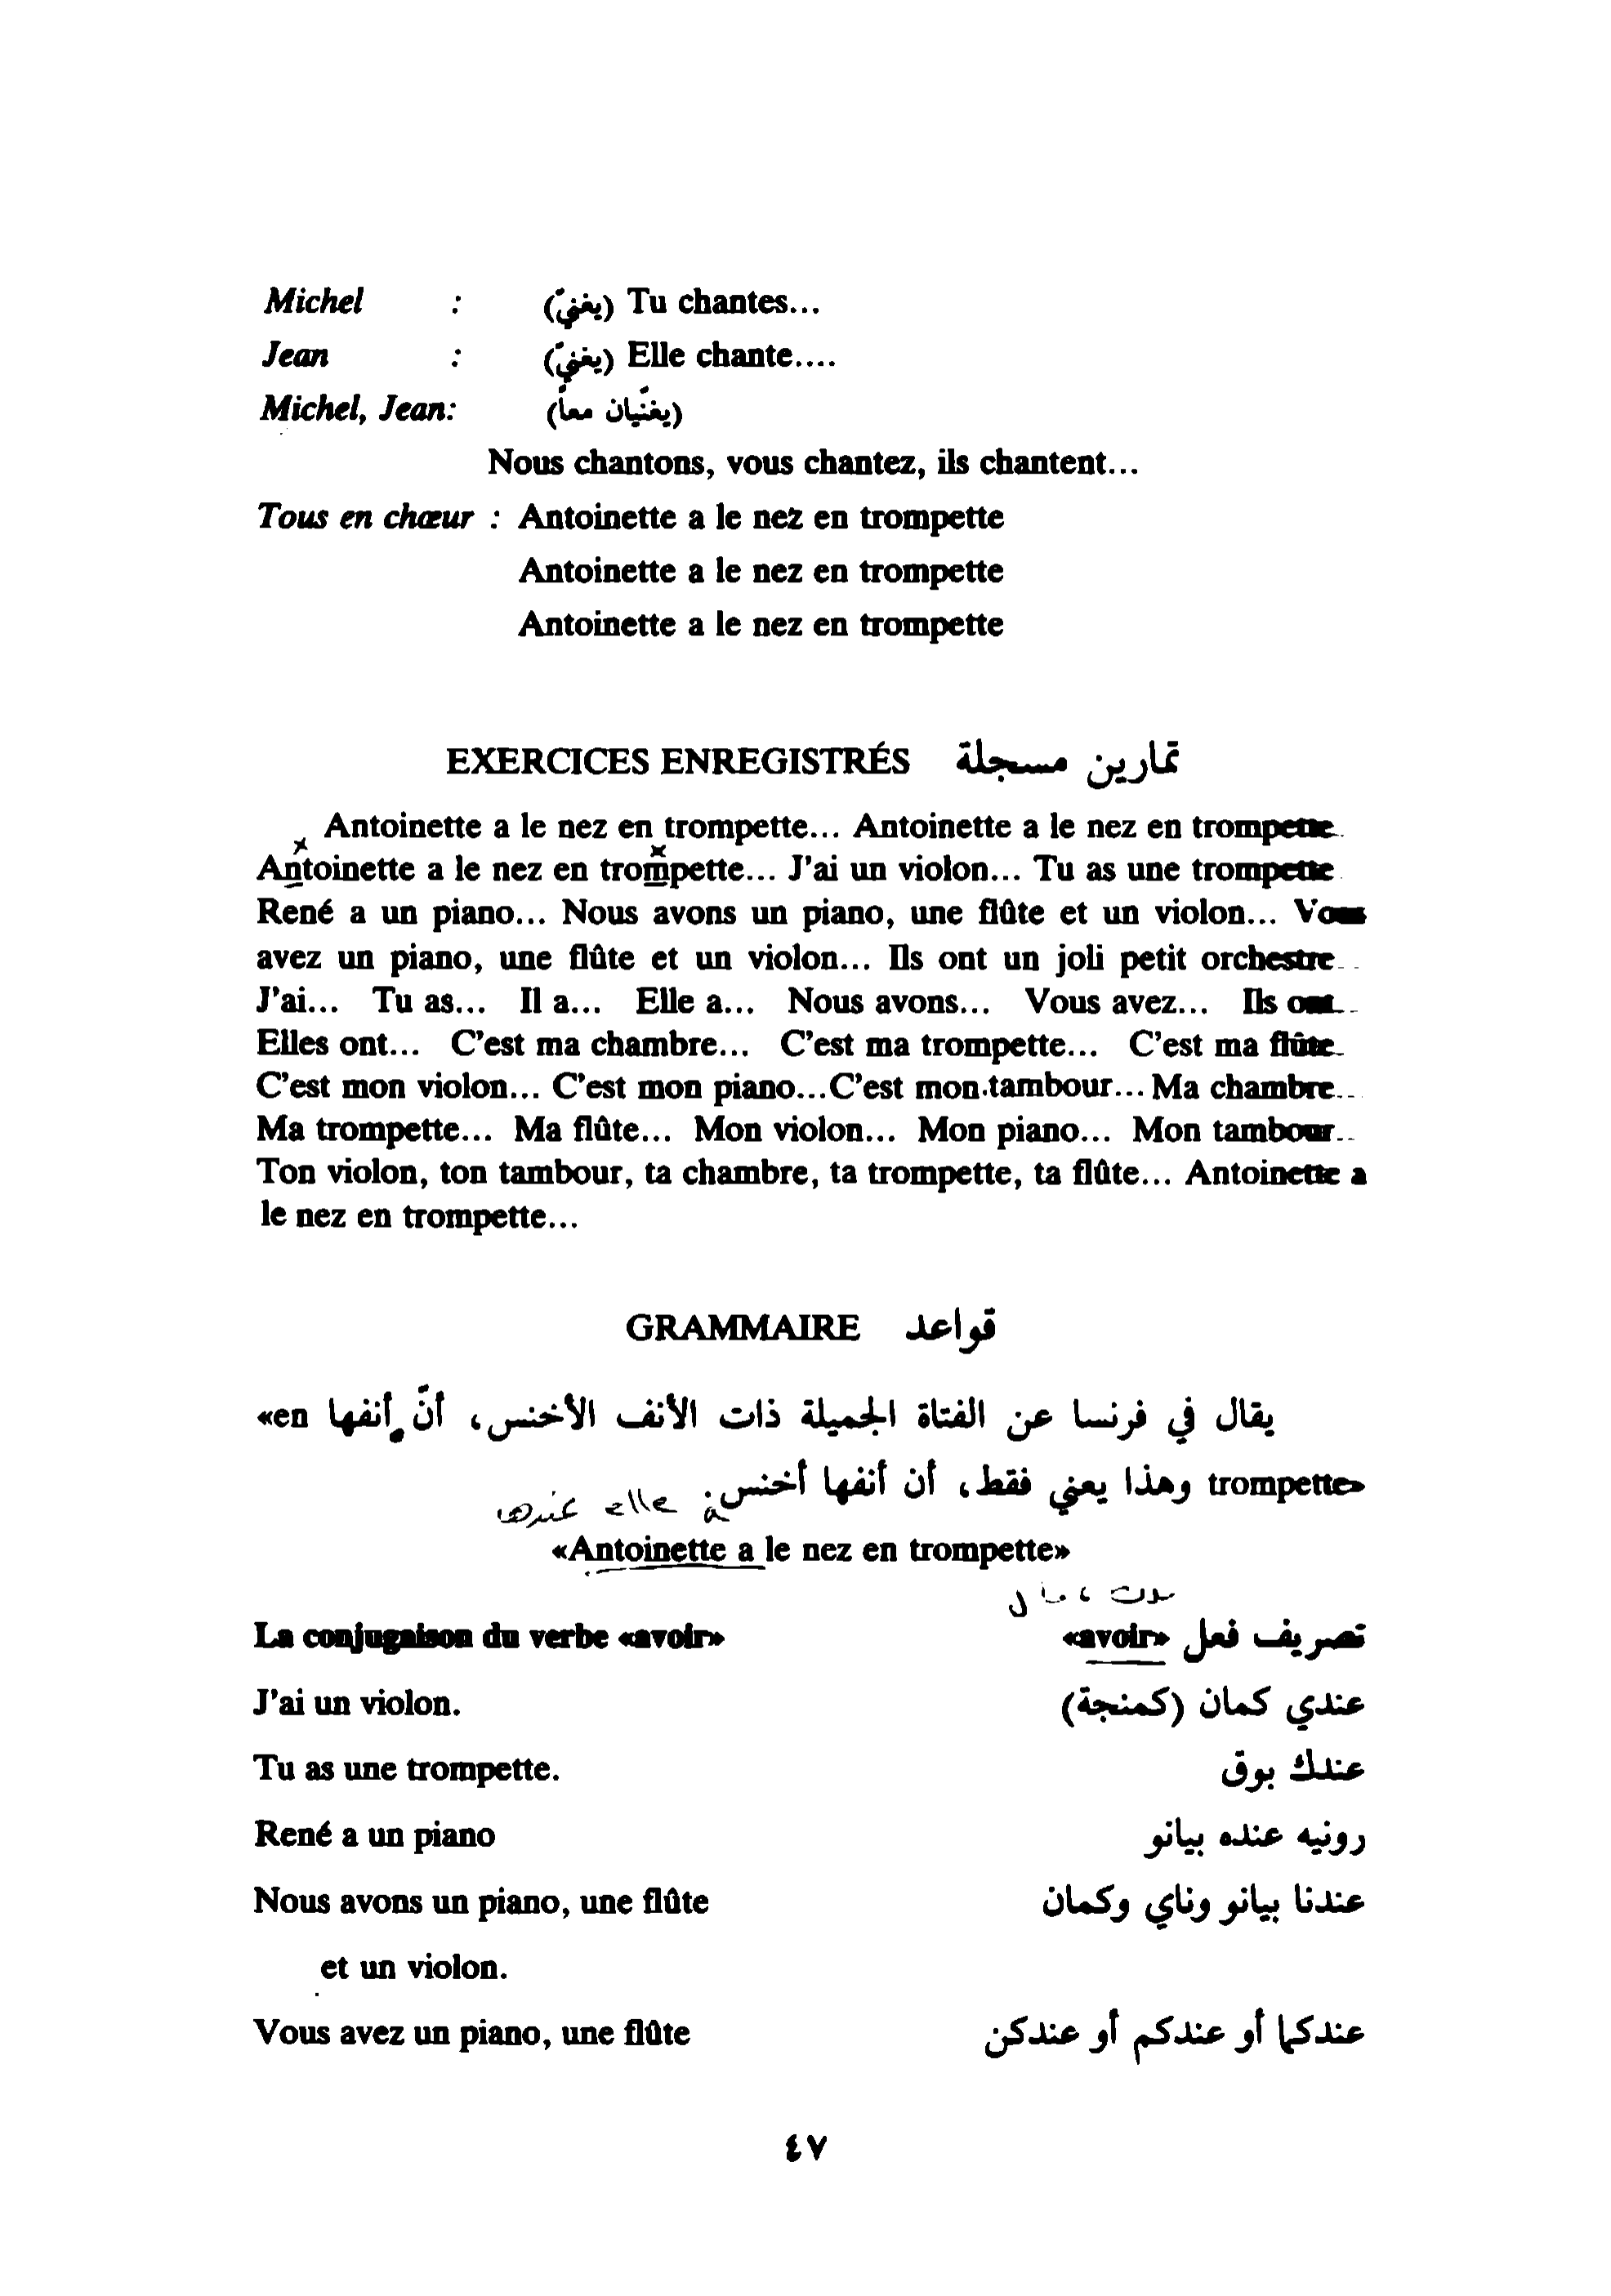 Michel : (يغنيّ) Tu chantes...
Jean : (يغنيّ) Elle chante....
Michel, Jean: (يغنّيان معاً)
Nous chantons, vous chantez, ils chantent...
Tous en chœur : Antoinette a le nez en trompette
Antoinette a le nez en trompette
Antoinette a le nez en trompette
EXERCICES ENREGISTRÉS تمارين مسجلة
Antoinette a le nez en trompette... Antoinette a le nez en trompette..
Antoinette a le nez en trompette... J'ai un violon... Tu as une trompette
René a un piano... Nous avons un piano, une flûte et un violon... Vous
avez un piano, une flûte et un violon... Ils ont un joli petit orchestre..
J'ai... Tu as... Il a... Elle a... Nous avons... Vous avez... Ils ont..
Elles ont... C'est ma chambre... C'est ma trompette... C'est ma flûte..
C'est mon violon... C'est mon piano...C'est mon tambour... Ma chambre..
Ma trompette... Ma flûte... Mon violon... Mon piano... Mon tambour..
Ton violon, ton tambour, ta chambre, ta trompette, ta flûte... Antoinette a
le nez en trompette...
GRAMMAIRE قواعد
يقال في فرنسا عن الفتاة الجميلة ذات الأنف الأخنس، أنّ أنفها «en
trompette» وهذا يعني فقط، أن أنفها أخنس.
a elle عندها
«Antoinette a le nez en trompette»
La conjugaison du verbe «avoir» تصريف فعل «avoir»
J'ai un violon. عندي كمان (كمنجة)
Tu as une trompette. عندك بوق
René a un piano رونيه عنده بيانو
Nous avons un piano, une flûte عندنا بيانو وناي وكمان
et un violon.
Vous avez un piano, une flûte عندكما أو عندكم أو عندكن
٤٧